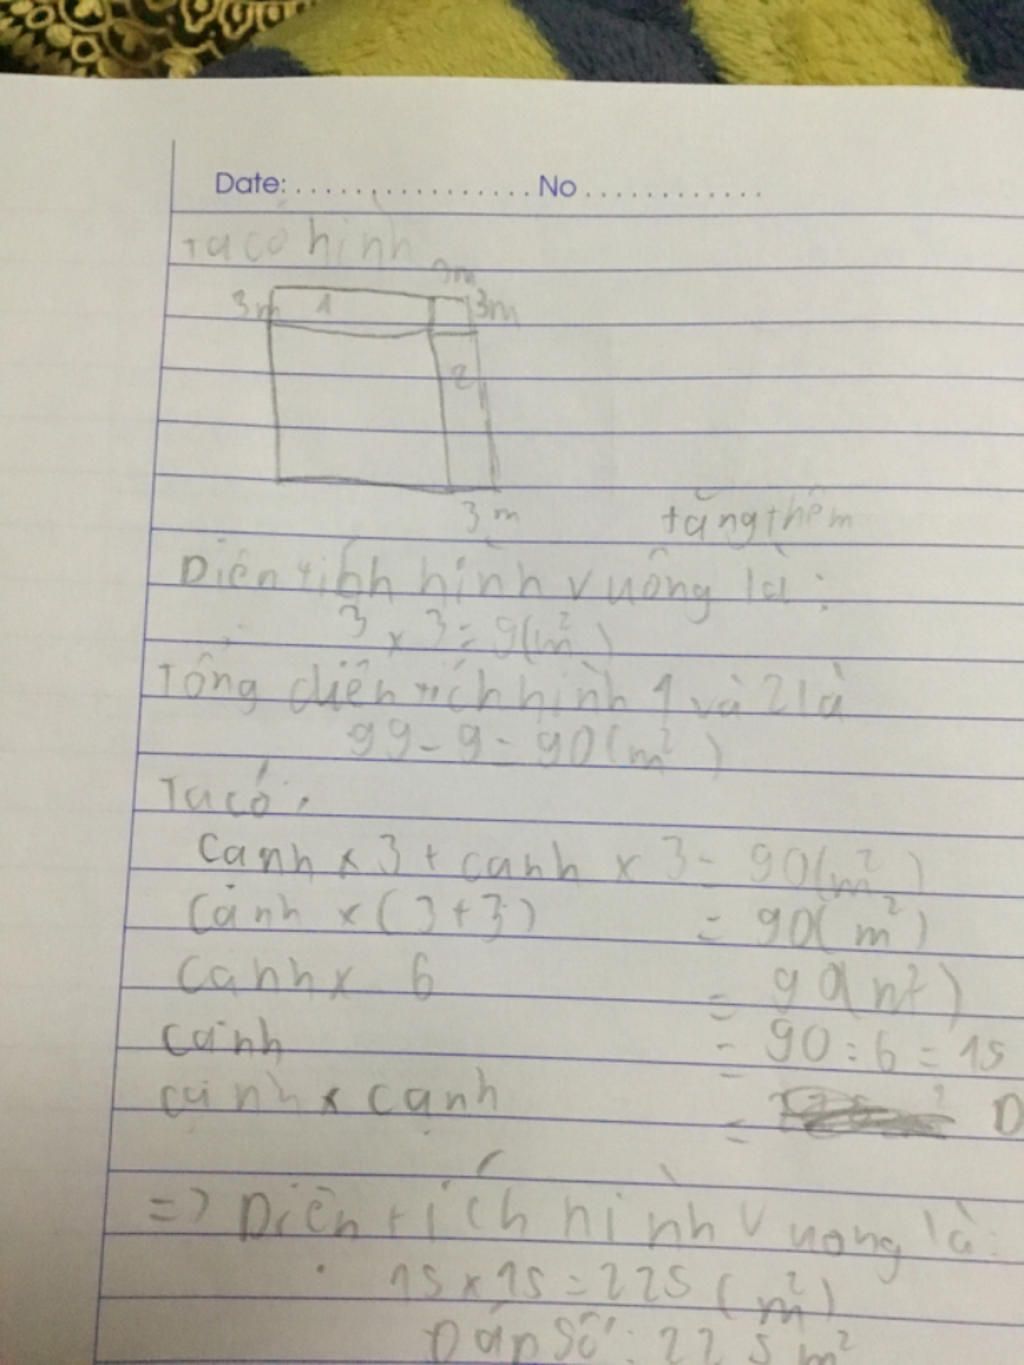 Date: ................. No ............
Ta có hình
3m
3m 1 3m
2
3m tăng thêm
Diện tính hình vuông là:
3 x 3 = 9(m²)
Tổng diện tích hình 1 và 2 là
99 - 9 = 90(m²)
Ta có:
canh x 3 + canh x 3 = 90(m²)
cảnh x (3+3) = 90(m²)
canh x 6 = 90(m²)
cảnh = 90 : 6 = 15
cảnh x cạnh = D
=> Diện tích hình vuong là:
15 x 15 = 225 (m²)
Đáp số: 225 m²